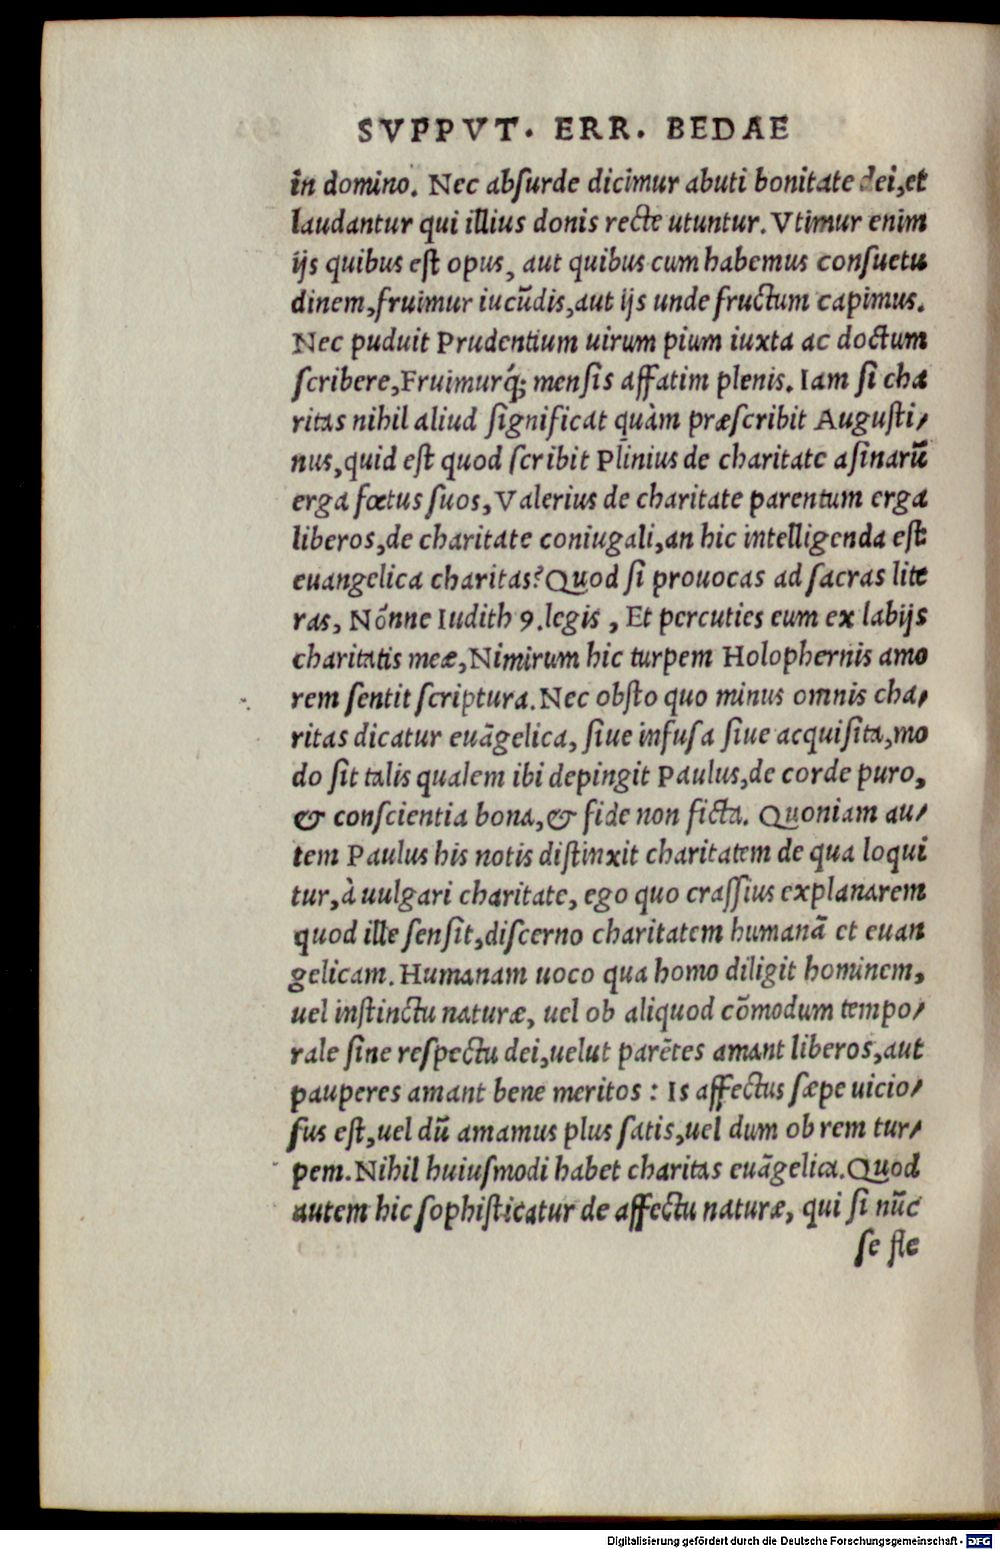 SVPPVT. ERR. BEDAE
in domino. Nec absurde dicimur abuti bonitate dei,et
laudantur qui illius donis recte utuntur. Vtimur enim
ijs quibus est opus, aut quibus cum habemus consuetu
dinem,fruimur iucũdis,aut ijs unde fructum capimus.
Nec puduit Prudentium uirum pium iuxta ac doctum
scribere,Fruimurq́; mensis affatim plenis. Iam si cha
ritas nihil aliud significat quàm præscribit Augusti/
nus,quid est quod scribit Plinius de charitate asinarũ
erga fœtus suos, Valerius de charitate parentum erga
liberos,de charitate coniugali,an hic intelligenda est
euangelica charitas? Quod si prouocas ad sacras lite
ras, Nõnne Iudith 9.legis , Et percuties eum ex labijs
charitatis meæ,Nimirum hic turpem Holophernis amo
rem sentit scriptura. Nec obsto quo minus omnis cha/
ritas dicatur euãgelica, siue infusa siue acquisita,mo
do sit talis qualem ibi depingit Paulus,de corde puro,
& conscientia bona,& fide non ficta. Quoniam au/
tem Paulus his notis distinxit charitatem de qua loqui
tur,à uulgari charitate, ego quo crassius explanarem
quod ille sensit,discerno charitatem humanã et euan
gelicam. Humanam uoco qua homo diligit hominem,
uel instinctu naturæ, uel ob aliquod cõmodum tempo/
rale sine respectu dei,uelut parẽtes amant liberos,aut
pauperes amant bene meritos : Is affectus sæpe uicio/
sus est,uel dũ amamus plus satis,uel dum ob rem tur/
pem. Nihil huiusmodi habet charitas euãgelica. Quod
autem hic sophisticatur de affectu naturæ, qui si nũc
se fle
Digitalisierung gefördert durch die Deutsche Forschungsgemeinschaft - DFG